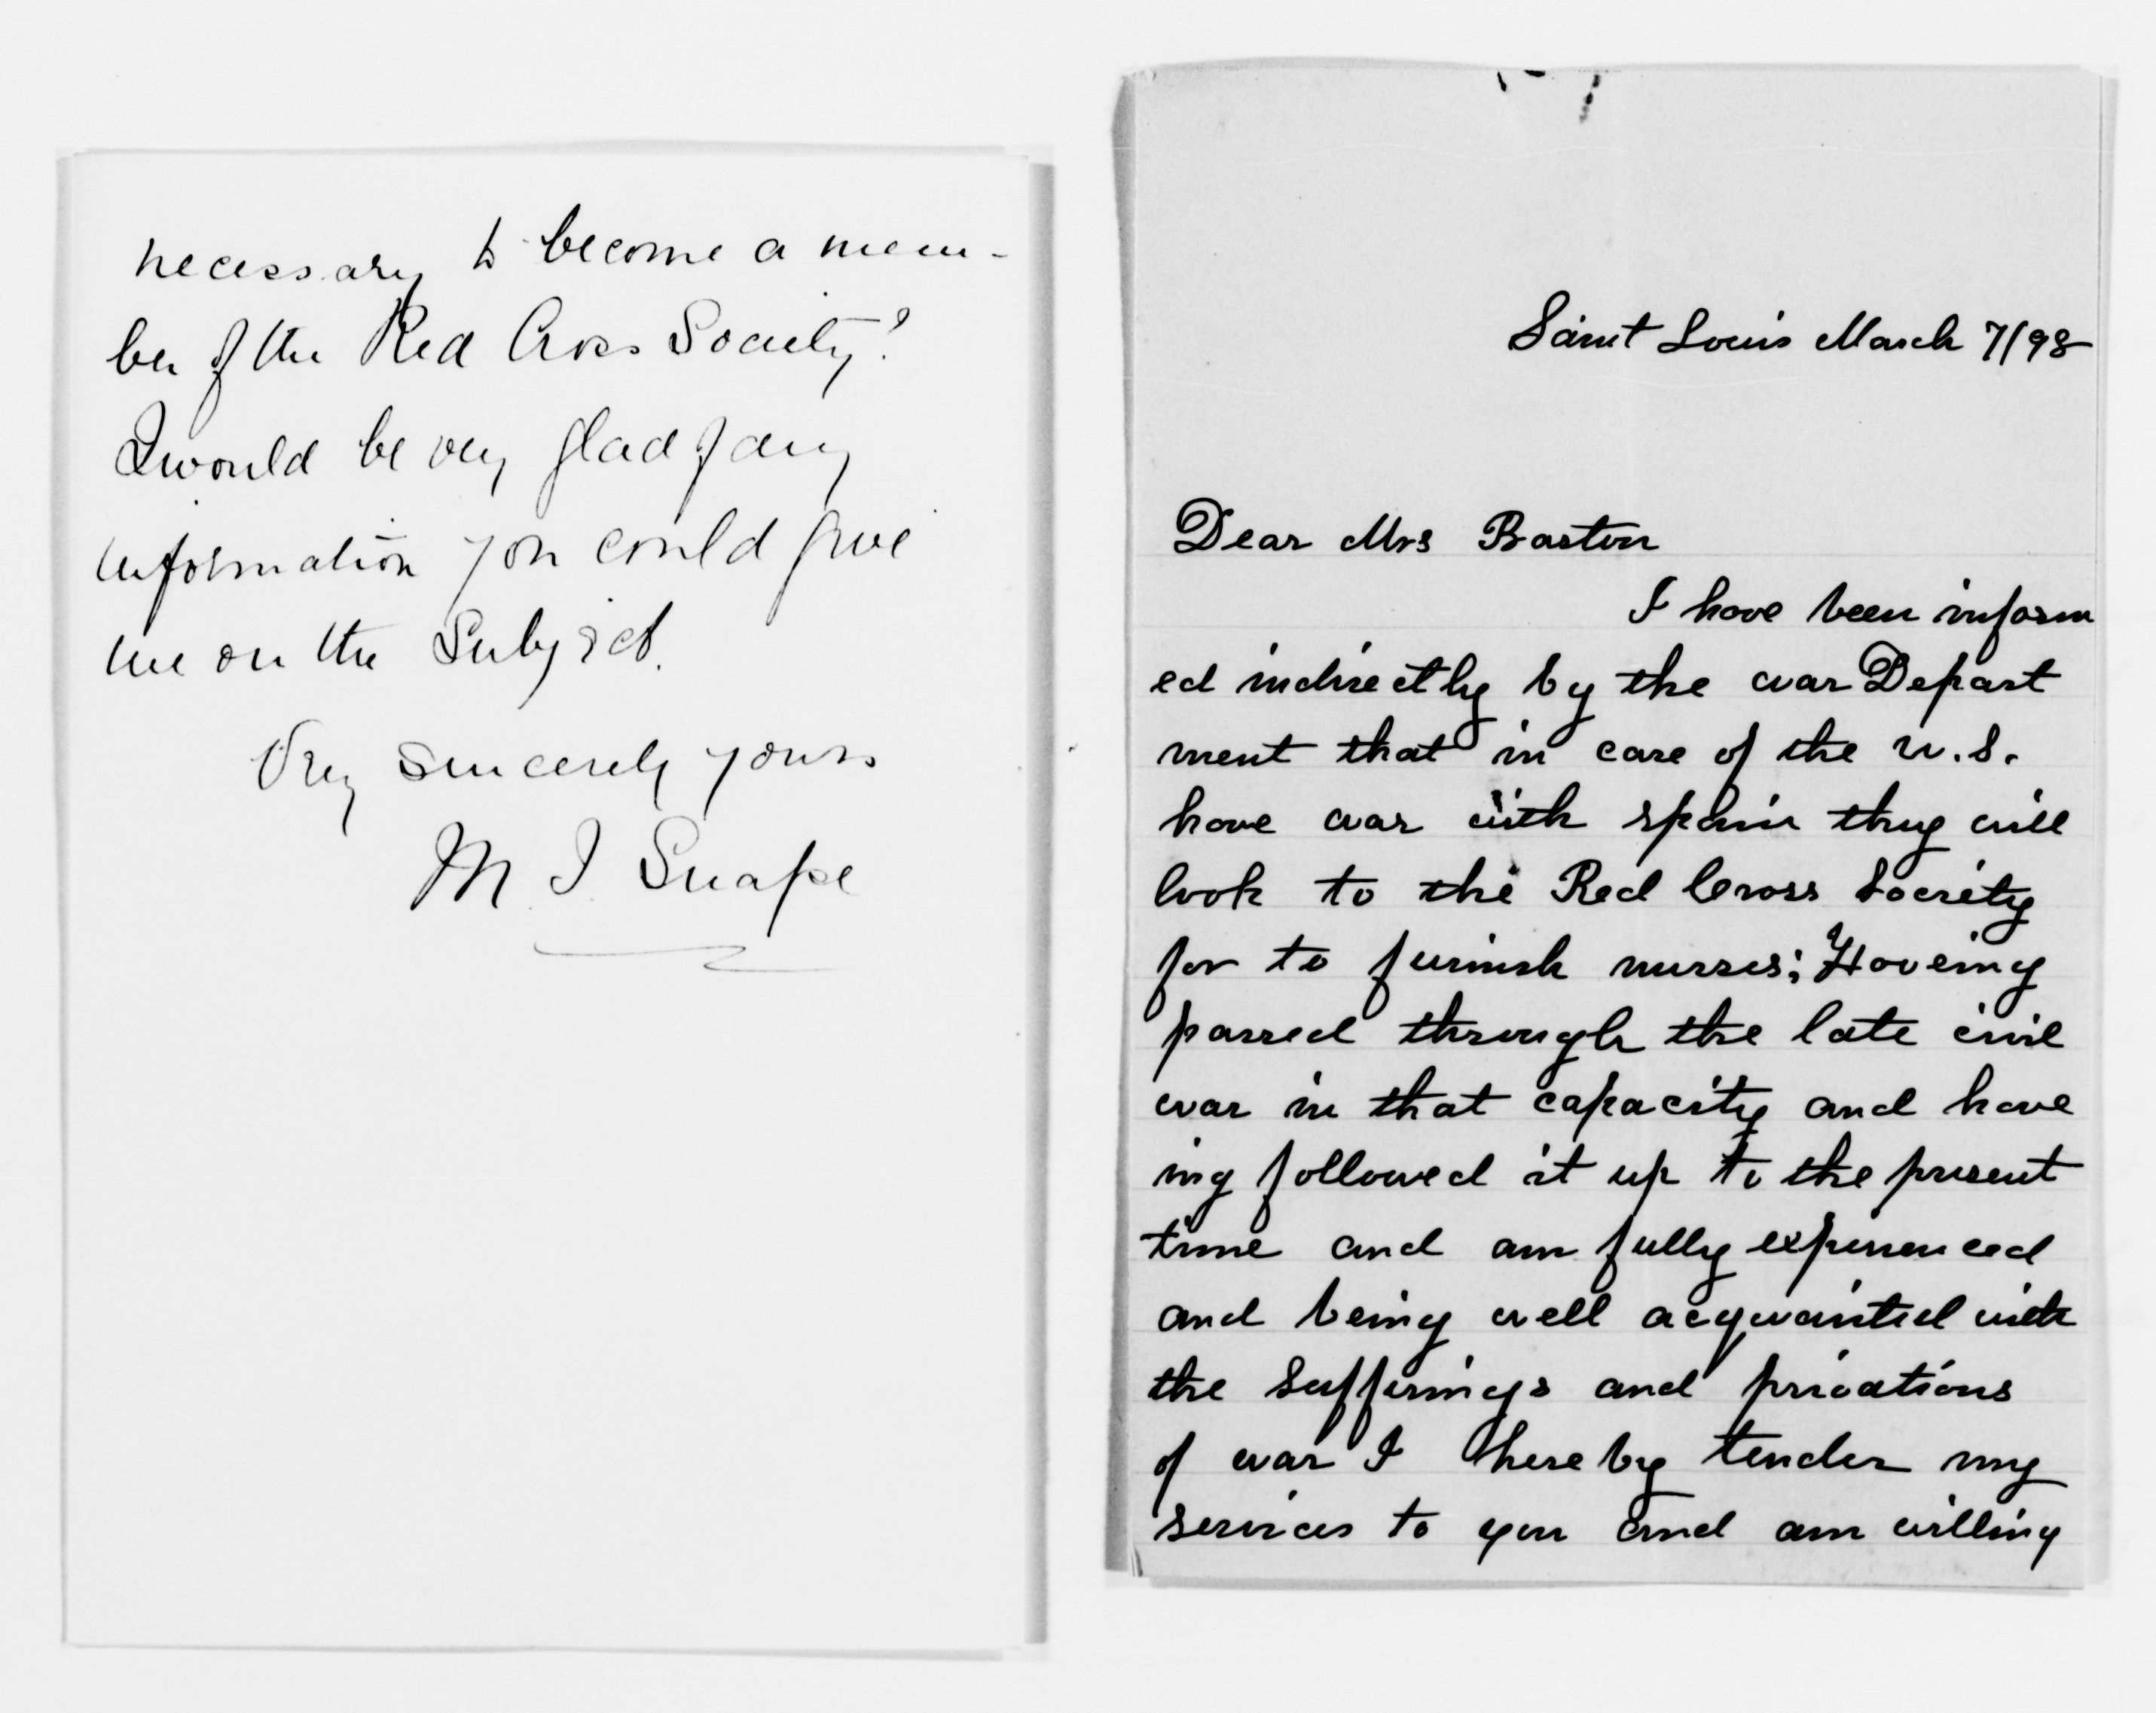 necessary to become a mem-
ber of the Red Cross Society?
I would be very glad of any
information you could give
me on the Subject.
Very sincerely yours
M. I. Snape
Saint Louis March 7/98
Dear Mrs Barton
I have been inform
ed indirectly by the war Depart
ment that in case of the U.S.
have war with spain they will
look to the Red Cross Society
for to furnish nurses; Haveing
passed through the late civil
war in that capacity and have
ing followed it up to the present
time and am fully experienced
and being well acquainted with
the Sufferings and privations
of war I hereby tender my
services to you and am willing